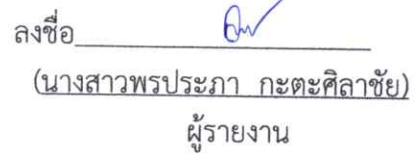 ลงชื่อ
(นางสาวพรประภา กะตะศิลาชัย)
ผู้รายงาน